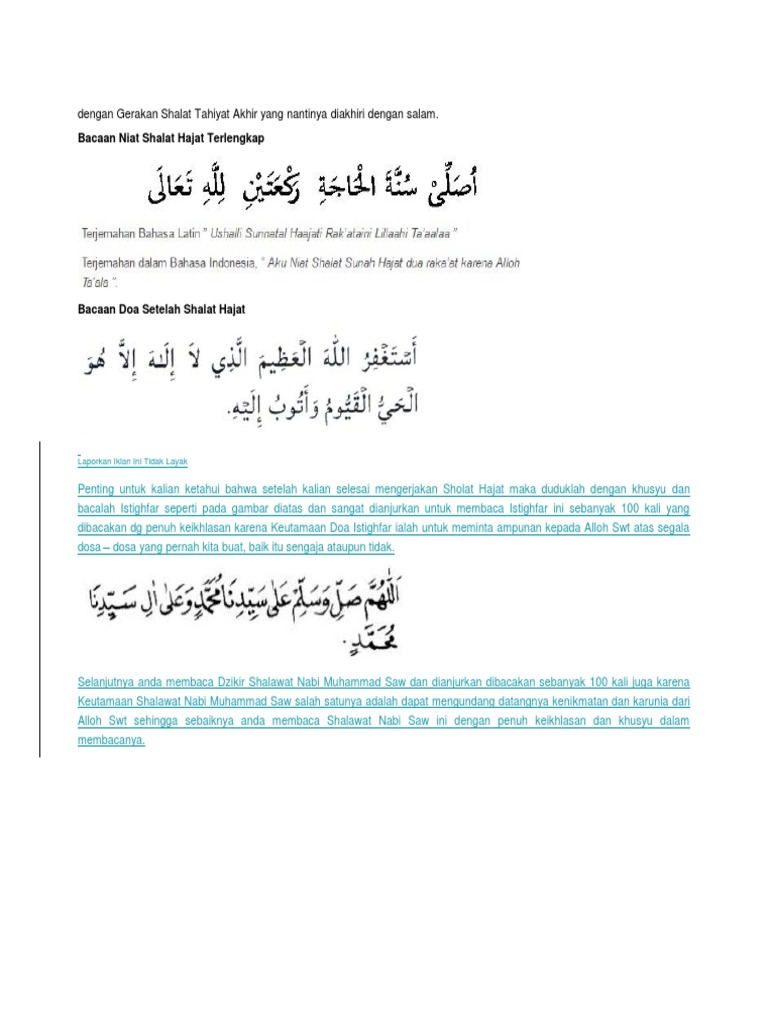 dengan Gerakan Shalat Tahiyat Akhir yang nantinya diakhiri dengan salam.
Bacaan Niat Shalat Hajat Terlengkap
اُصَلِّيْ سُنَّةَ الْحَاجَةِ رَكْعَتَيْنِ لِلَّهِ تَعَالَى
Terjemahan Bahasa Latin " Ushalli Sunnatal Haajati Rak'ataini Lillaahi Ta'aalaa "
Terjemahan dalam Bahasa Indonesia, " Aku Niat Shalat Sunah Hajat dua raka'at karena Alloh
Ta'ala ".
Bacaan Doa Setelah Shalat Hajat
أَسْتَغْفِرُ اللهَ الْعَظِيمَ الَّذِي لَا إِلَـٰهَ إِلَّا هُوَ
الْحَيُّ الْقَيُّومُ وَأَتُوبُ إِلَيْهِ.
Laporkan Iklan Ini Tidak Layak
Penting untuk kalian ketahui bahwa setelah kalian selesai mengerjakan Sholat Hajat maka duduklah dengan khusyu dan
bacalah Istighfar seperti pada gambar diatas dan sangat dianjurkan untuk membaca Istighfar ini sebanyak 100 kali yang
dibacakan dg penuh keikhlasan karena Keutamaan Doa Istighfar ialah untuk meminta ampunan kepada Alloh Swt atas segala
dosa – dosa yang pernah kita buat, baik itu sengaja ataupun tidak.
اَللّٰهُمَّ صَلِّ وَسَلِّمْ عَلٰى سَيِّدِنَا مُحَمَّدٍ وَعَلٰى اٰلِ سَيِّدِنَا
مُحَمَّدٍ.
Selanjutnya anda membaca Dzikir Shalawat Nabi Muhammad Saw dan dianjurkan dibacakan sebanyak 100 kali juga karena
Keutamaan Shalawat Nabi Muhammad Saw salah satunya adalah dapat mengundang datangnya kenikmatan dan karunia dari
Alloh Swt sehingga sebaiknya anda membaca Shalawat Nabi Saw ini dengan penuh keikhlasan dan khusyu dalam
membacanya.